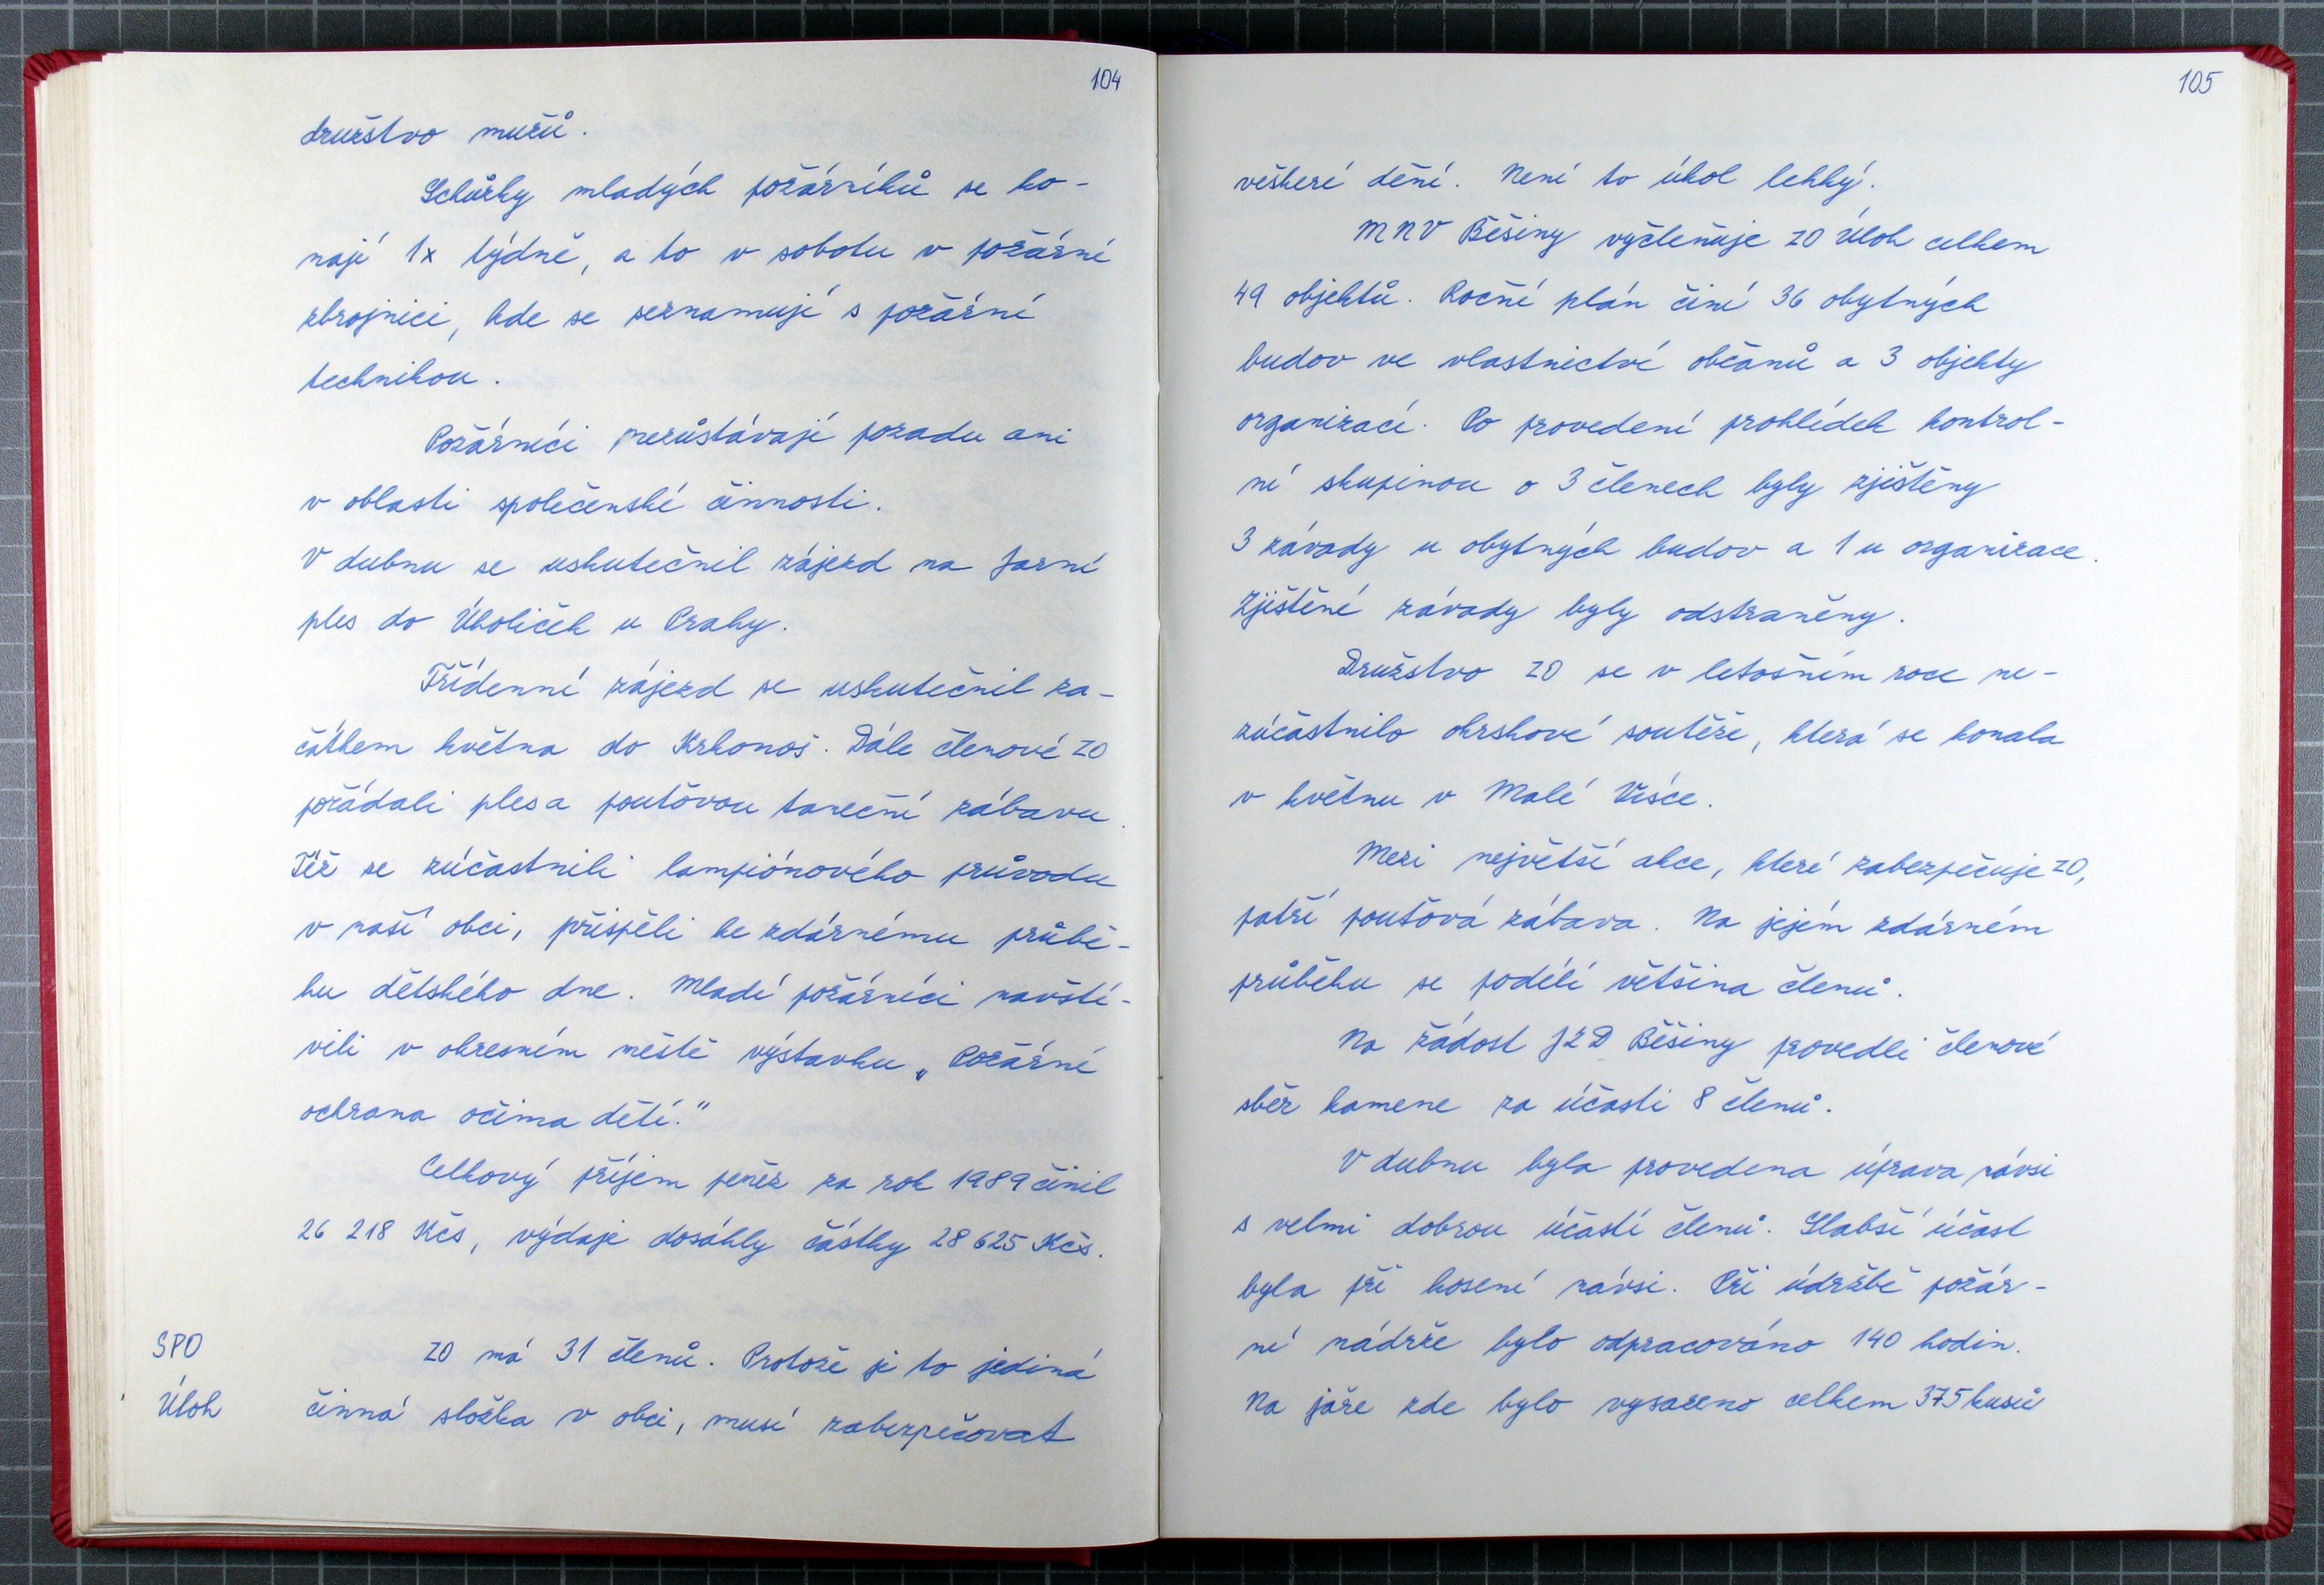 104
družstvo mužů.
Schůzky mladých požárníků se ko-
nají 1x týdně, a to v sobotu v požární
zbrojnici, kde se seznamují s požární
technikou.
Požárníci nezůstávají pozadu ani
v oblasti společenské činnosti.
V dubnu se uskutečnil zájezd na Jarní
ples do Úholiček u Prahy.
Třídenní zájezd se uskutečnil za-
čátkem května do Krkonoš. Dále členové ZO
pořádali ples a pouťovou taneční zábavu.
Též se zúčastnili lampiónového průvodu
v naší obci, přispěli ke zdárnému průbě-
hu dětského dne. Mladí požárníci navští-
vili v okresním městě výstavku „Požární
ochrana očima dětí."
Celkový příjem peněz za rok 1989 činil
26 218 Kčs, výdaje dosáhly částky 28 625 Kčs.
SPO
Úloh
ZO má 31 členů. Protože je to jediná
činná složka v obci, musí zabezpečovat
105
veškeré dění. Není to úkol lehký.
MNV Běšiny vyčleňuje ZO Úloh celkem
49 objektů. Roční plán činí 36 obytných
budov ve vlastnictví občanů a 3 objekty
organizací. Po provedení prohlídek kontrol-
ní skupinou o 3 členech byly zjištěny
3 závady u obytných budov a 1 u organizace.
Zjištěné závady byly odstraněny.
Družstvo ZO se v letošním roce ne-
zúčastnilo okrskové soutěže, která se konala
v květnu v Malé Vísce.
Mezi největší akce, které zabezpečuje ZO,
patří pouťová zábava. Na jejím zdárném
průběhu se podílí většina členů.
Na žádost JZD Běšiny provedli členové
sběr kamene za účasti 8 členů.
V dubnu byla provedena úprava návsi
s velmi dobrou účastí členů. Slabší účast
byla při kosení návsi. Při údržbě požár-
ní nádrže bylo odpracováno 140 hodin.
Na jaře zde bylo vysazeno celkem 375 kusů